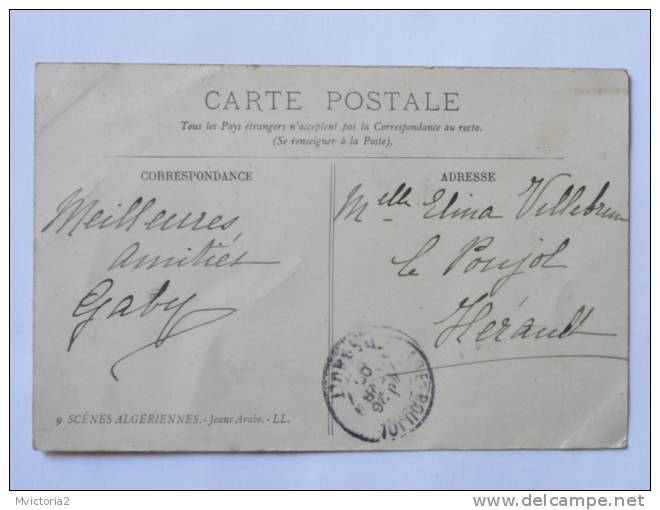 CARTE POSTALE
Tous les Pays étrangers n'acceptent pas la Correspondance au recto.
(Se renseigner à la Poste).
CORRESPONDANCE
Meilleures
amitiés
Gaby
ADRESSE
Melle Elina Villebrun
le Poujol
Hérault
HERAULT
POUJOL
26
9 SCÈNES ALGÉRIENNES.-Jeune Arabe.-LL.
Mvictoria2
delcampe.net